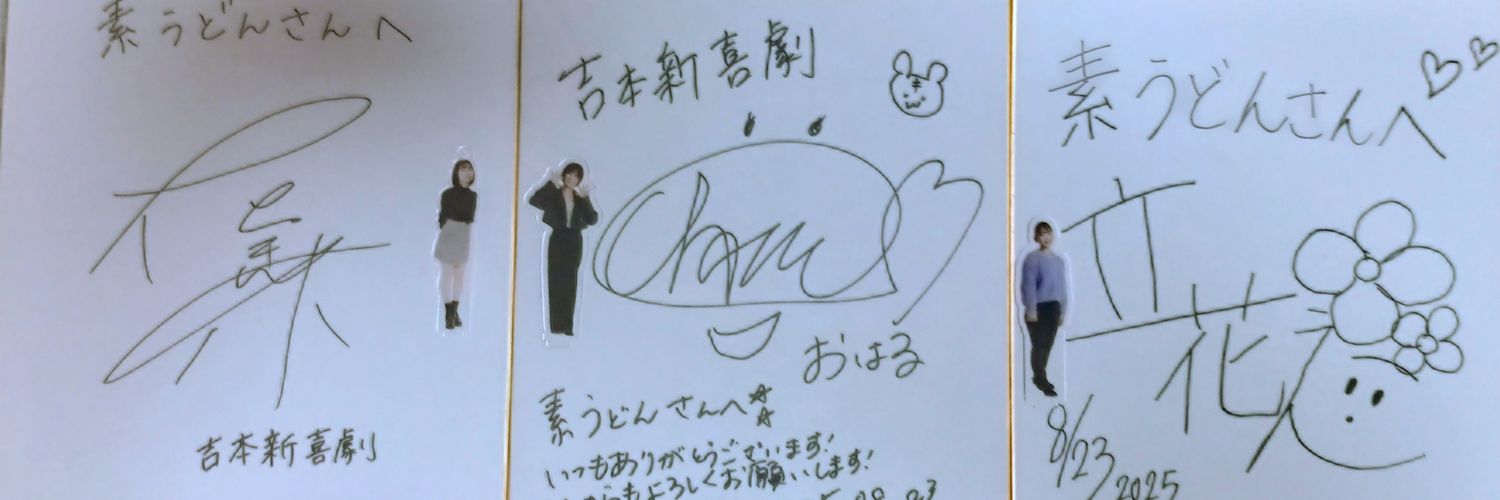 素うどんさんへ
吉本新喜劇
吉本新喜劇
おはる
素うどんさんへ
いつもありがとうございます!
これからもよろしくお願いします!
素うどんさんへ
立花
8/23 2025